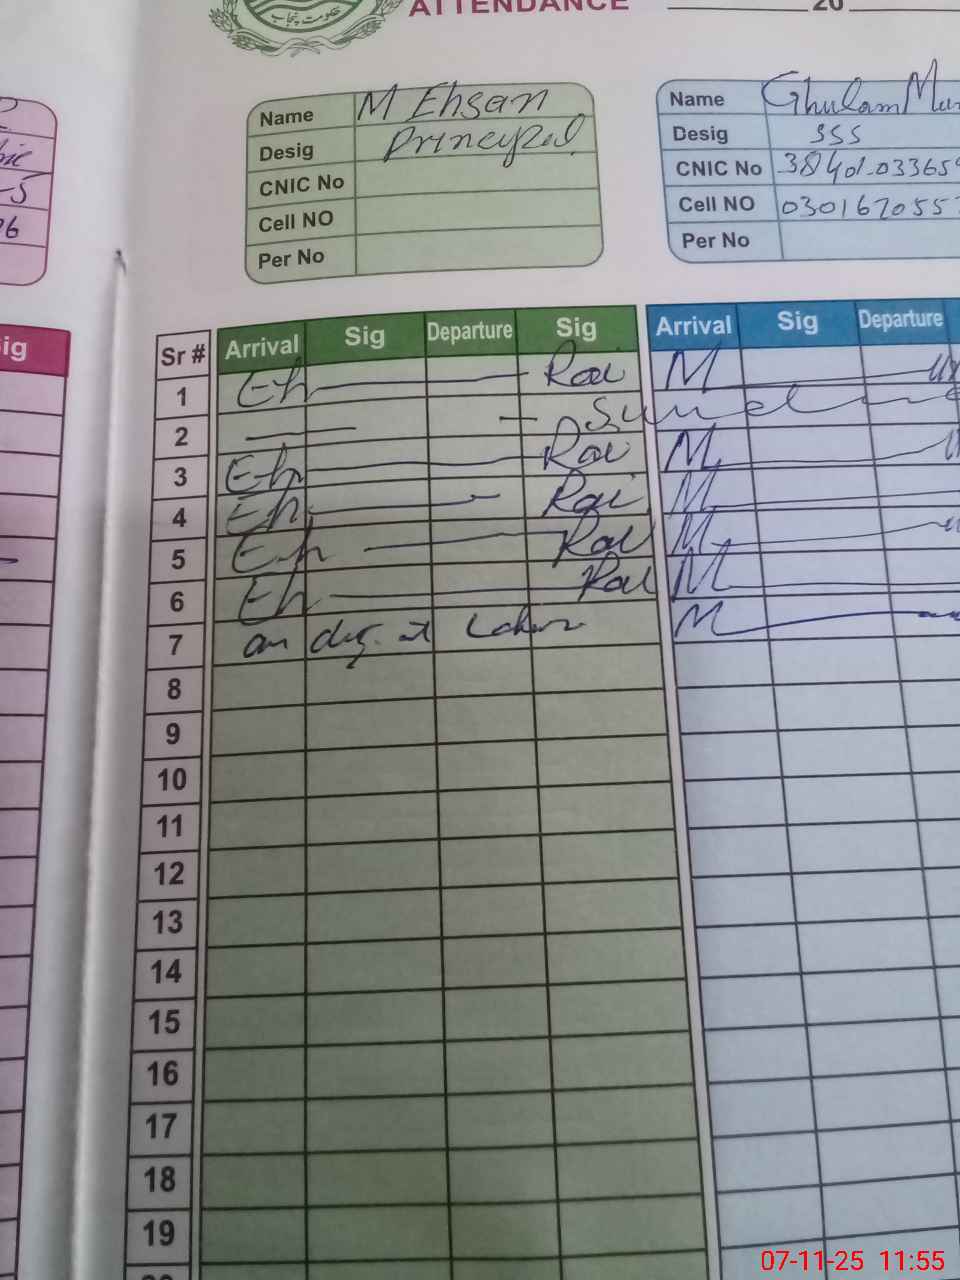 حکومت پنجاب
ATTENDANCE 20
Name M Ehsan
Desig Principal
CNIC No
Cell NO
Per No
Name Ghulam
Desig SSS
CNIC No 38401-03365
Cell NO 030167055
Per No
ig
Sr # Arrival Sig Departure Sig Arrival Sig Departure
1 Eh Rai M
2 Sund
3 Eh Rai M
4 Eh Rai M
5 Eh Rai M
6 Eh Rai M
7 on at Lahore M
8
9
10
11
12
13
14
15
16
17
18
19
07-11-25 11:55